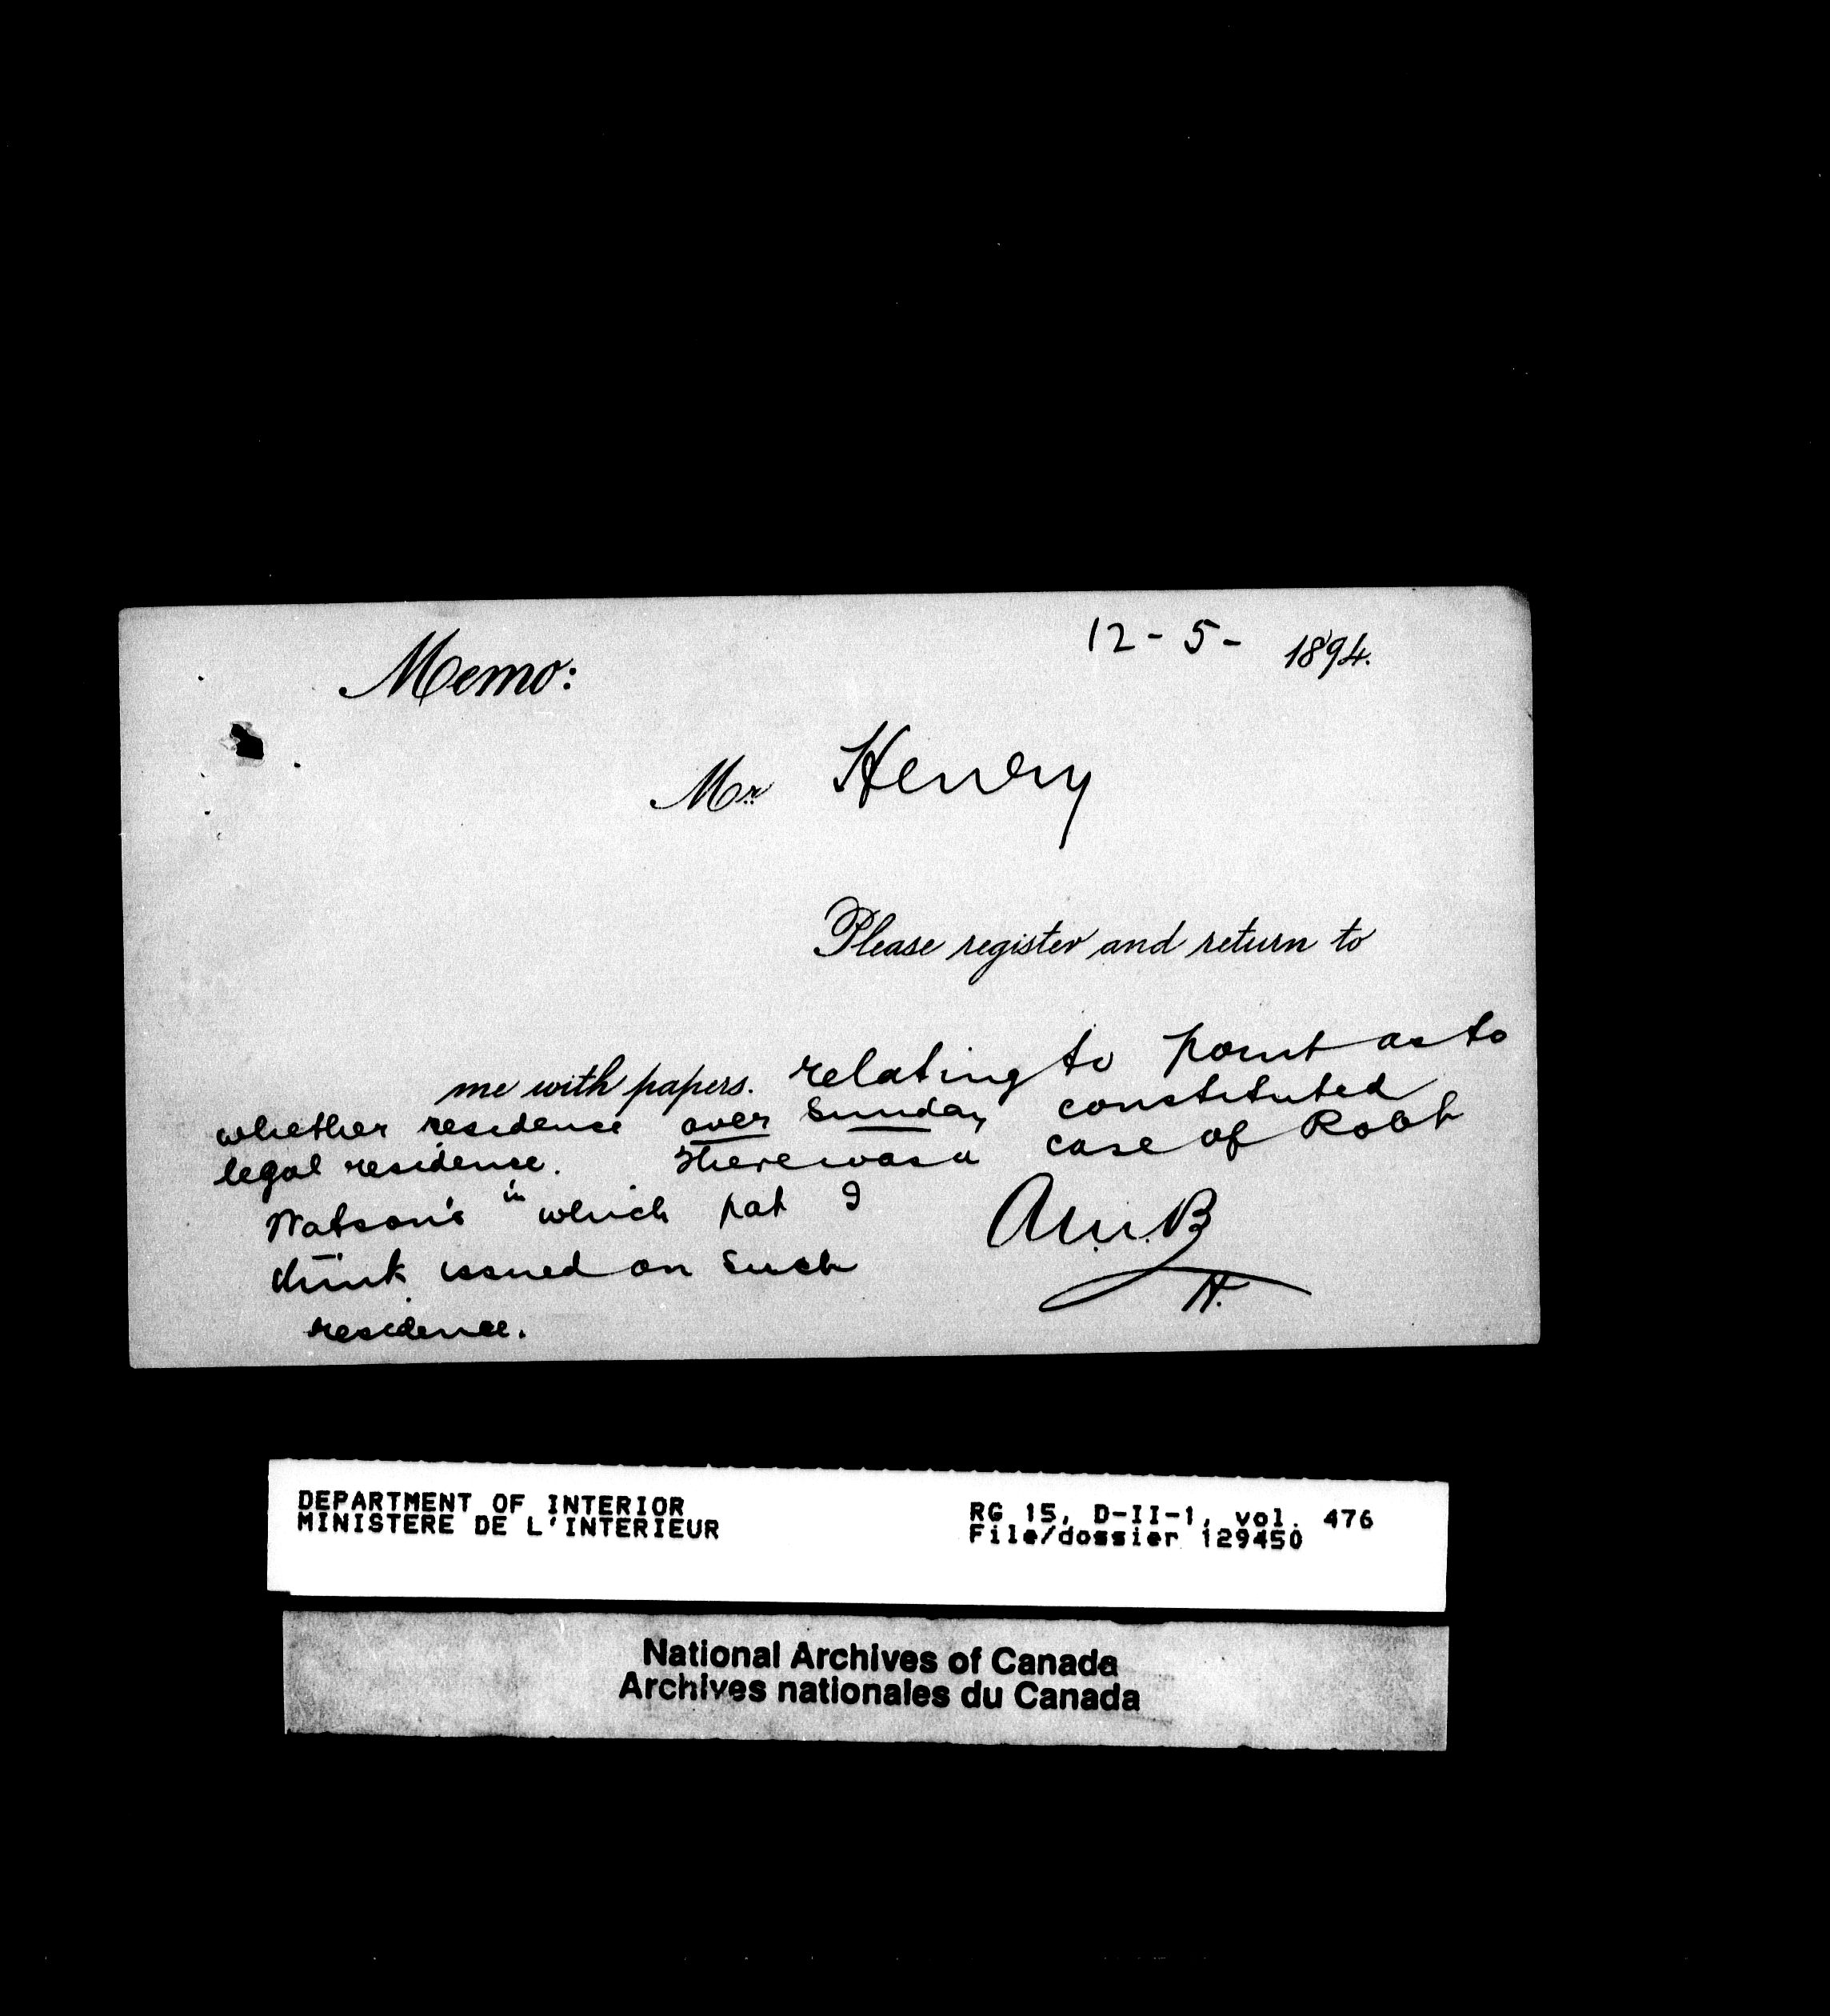 Memo:
12-5- 1894.
Mr Henry
Please register and return to
me with papers. relating to point as to
whether residence over Sunday constituted
legal residence. There was a case of Robt
Watson's in which pat I
think issued on such
residence.
A.M.B
H.
DEPARTMENT OF INTERIOR
MINISTERE DE L'INTERIEUR
RG 15, D-II-1, vol. 476
File/dossier 129450
National Archives of Canada
Archives nationales du Canada